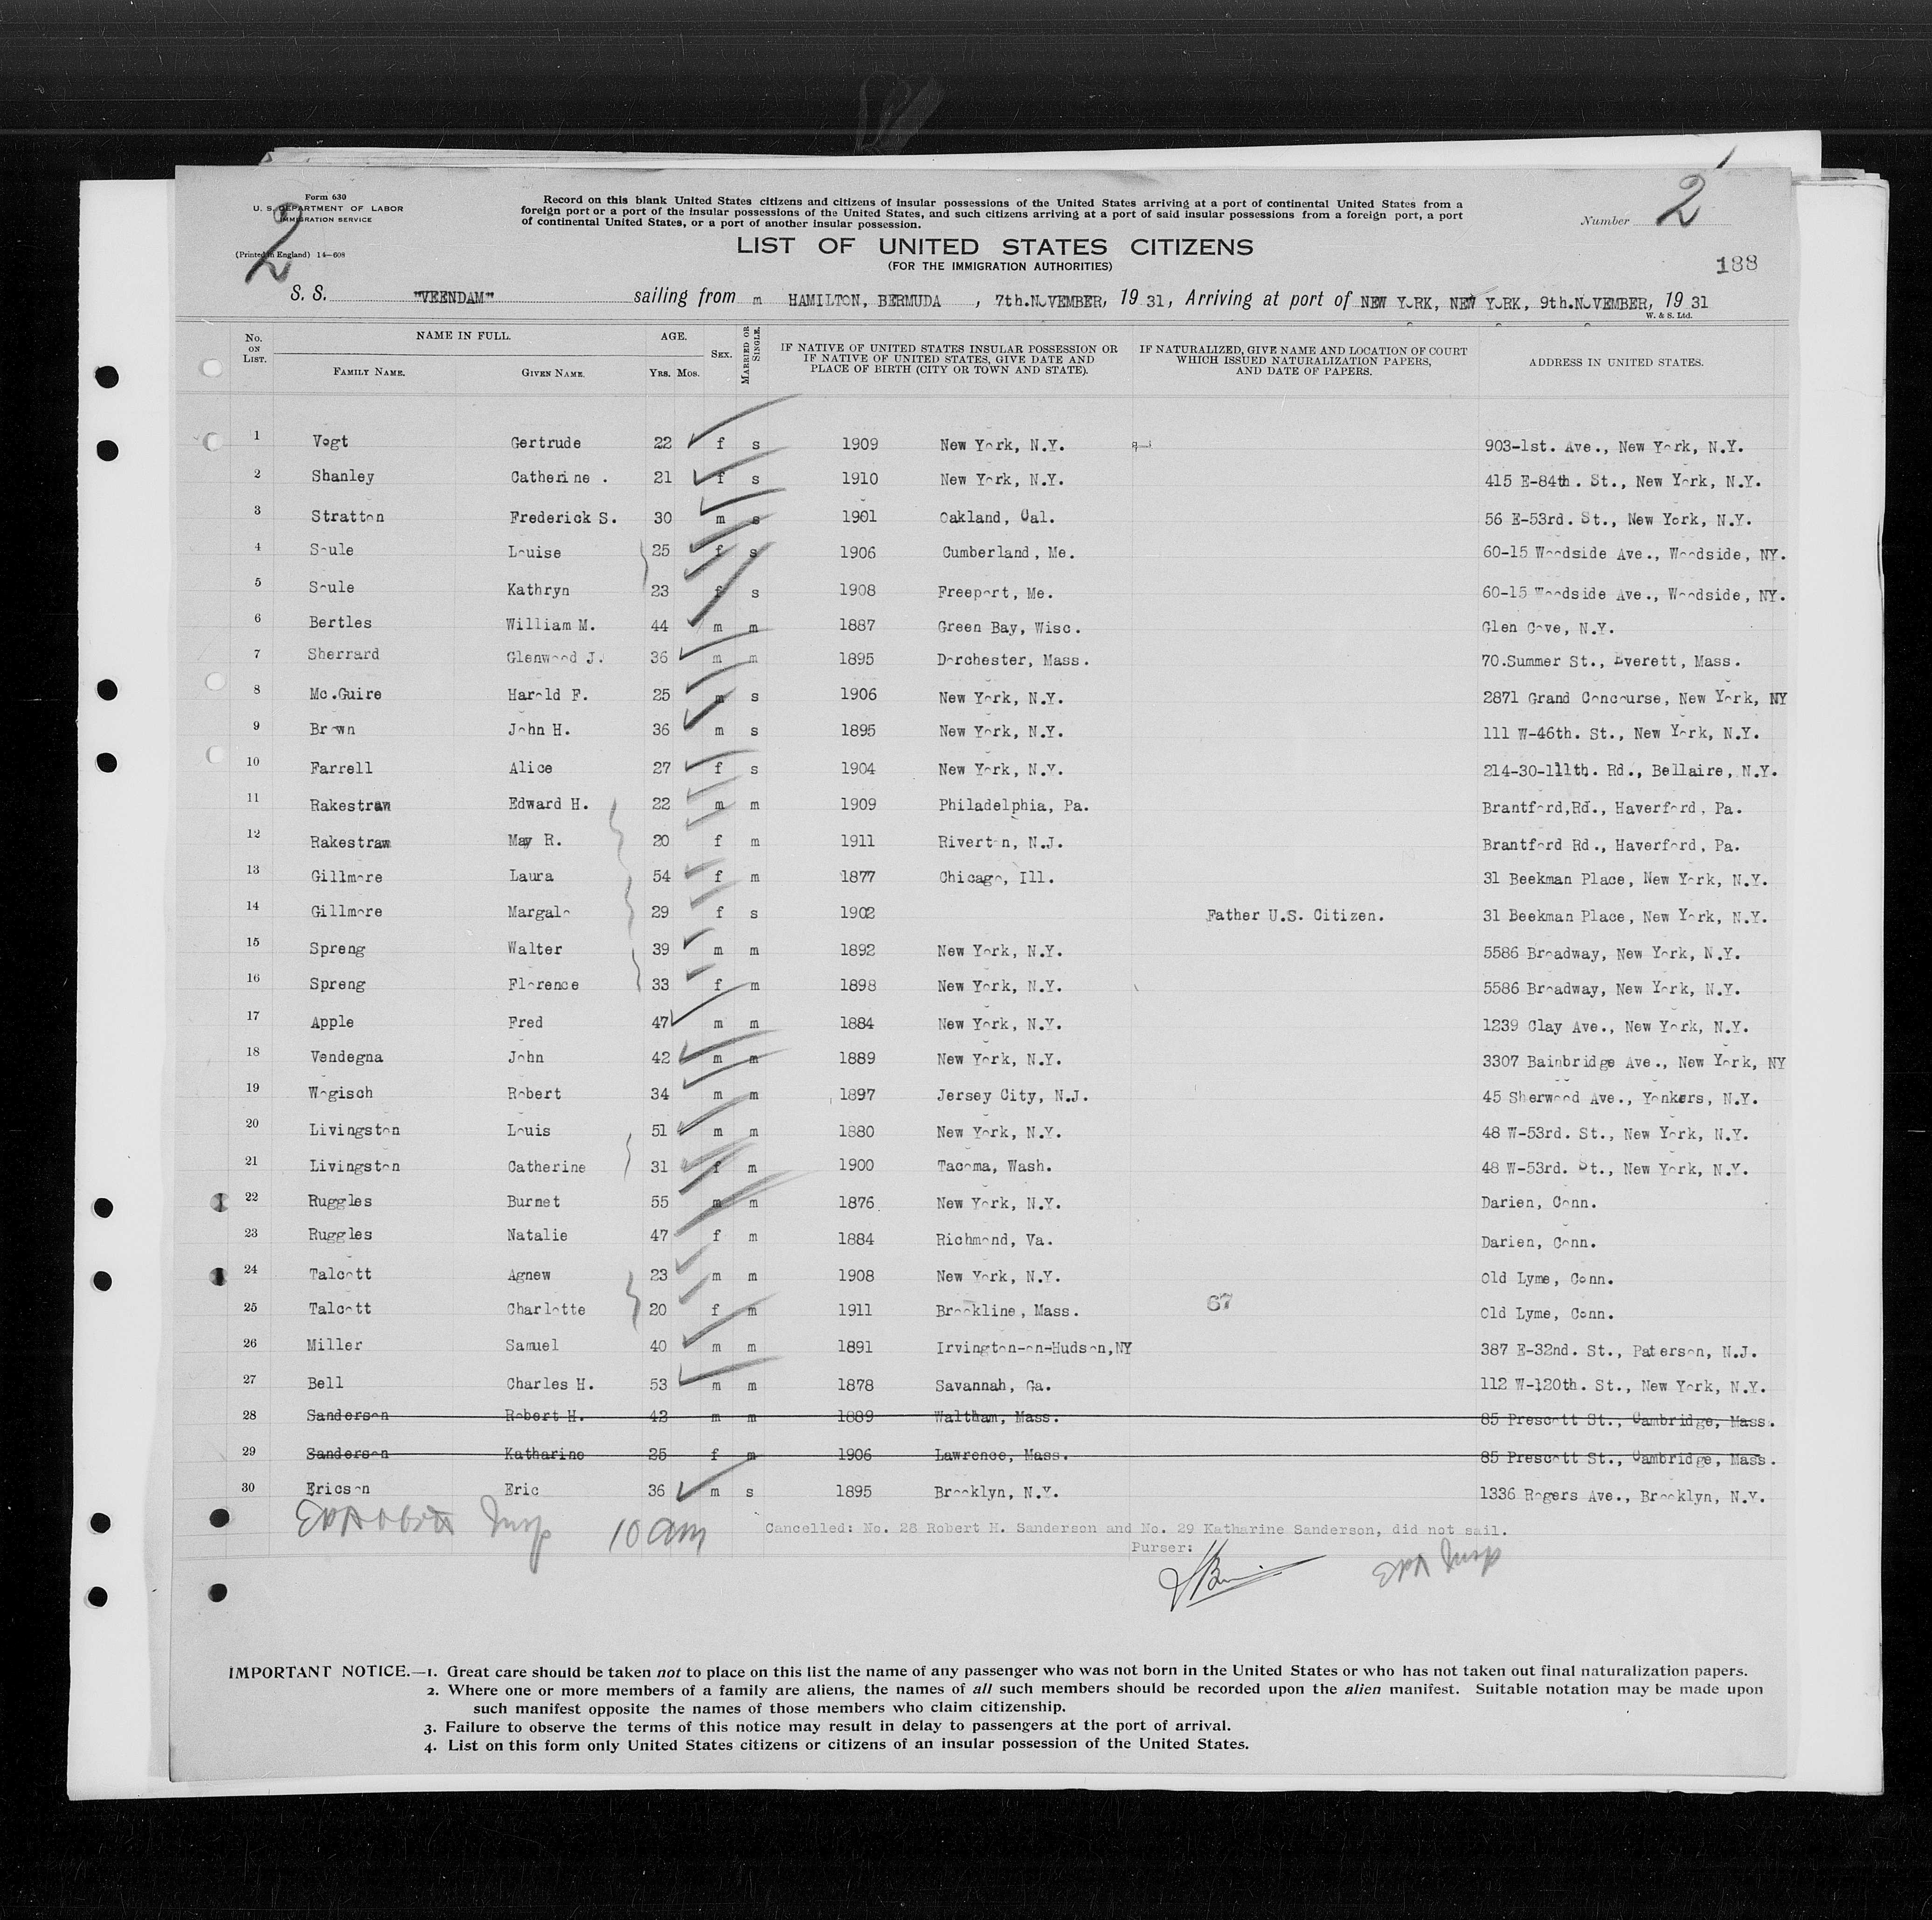 Form 630
U. S. DEPARTMENT OF LABOR
IMMIGRATION SERVICE
(Printed in England) 14—608
2
Record on this blank United States citizens and citizens of insular possessions of the United States arriving at a port of continental United States from a
foreign port or a port of the insular possessions of the United States, and such citizens arriving at a port of said insular possessions from a foreign port, a port
of continental United States, or a port of another insular possession.
Number 2
LIST OF UNITED STATES CITIZENS
(FOR THE IMMIGRATION AUTHORITIES)
188
S. S. "VEENDAM" sailing from m HAMILTON, BERMUDA , 7th.NOVEMBER, 19 31, Arriving at port of NEW YORK, NEW YORK, 9th.NOVEMBER, 19 31
W. & S. Ltd.
No. ON LIST. NAME IN FULL. AGE. SEX. MARRIED OR SINGLE. IF NATIVE OF UNITED STATES INSULAR POSSESSION OR IF NATIVE OF UNITED STATES, GIVE DATE AND PLACE OF BIRTH (CITY OR TOWN AND STATE). IF NATURALIZED, GIVE NAME AND LOCATION OF COURT WHICH ISSUED NATURALIZATION PAPERS, AND DATE OF PAPERS. ADDRESS IN UNITED STATES.
FAMILY NAME. GIVEN NAME. YRS. MOS.
1 Vogt Gertrude 22 f s 1909 New York, N.Y. 903-1st. Ave., New York, N.Y.
2 Shanley Catherine . 21 f s 1910 New York, N.Y. 415 E-84th. St., New York, N.Y.
3 Stratton Frederick S. 30 m s 1901 Oakland, Cal. 56 E-53rd. St., New York, N.Y.
4 Soule Louise 25 f s 1906 Cumberland, Me. 60-15 Woodside Ave., Woodside, NY.
5 Soule Kathryn 23 f s 1908 Freeport, Me. 60-15 Woodside Ave., Woodside, NY.
6 Bertles William M. 44 m m 1887 Green Bay, Wisc. Glen Cove, N.Y.
7 Sherrard Glenwood J. 36 m m 1895 Dorchester, Mass. 70.Summer St., Everett, Mass.
8 Mc.Guire Harold F. 25 m s 1906 New York, N.Y. 2871 Grand Concourse, New York, NY
9 Brown John H. 36 m s 1895 New York, N.Y. 111 W-46th. St., New York, N.Y.
10 Farrell Alice 27 f s 1904 New York, N.Y. 214-30-111th. Rd., Bellaire, N.Y.
11 Rakestraw Edward H. 22 m m 1909 Philadelphia, Pa. Brantford,Rd., Haverford, Pa.
12 Rakestraw May R. 20 f m 1911 Riverton, N.J. Brantford Rd., Haverford, Pa.
13 Gillmore Laura 54 f m 1877 Chicago, Ill. 31 Beekman Place, New York, N.Y.
14 Gillmore Margalo 29 f s 1902 Father U.S. Citizen. 31 Beekman Place, New York, N.Y.
15 Spreng Walter 39 m m 1892 New York, N.Y. 5586 Broadway, New York, N.Y.
16 Spreng Florence 33 f m 1898 New York, N.Y. 5586 Broadway, New York, N.Y.
17 Apple Fred 47 m m 1884 New York, N.Y. 1239 Clay Ave., New York, N.Y.
18 Vendegna John 42 m m 1889 New York, N.Y. 3307 Bainbridge Ave., New York, NY
19 Wogisch Robert 34 m m 1897 Jersey City, N.J. 45 Sherwood Ave., Yonkers, N.Y.
20 Livingston Louis 51 m m 1880 New York, N.Y. 48 W-53rd. St., New York, N.Y.
21 Livingston Catherine 31 f m 1900 Tacoma, Wash. 48 W-53rd. St., New York, N.Y.
22 Ruggles Burnet 55 m m 1876 New York, N.Y. Darien, Conn.
23 Ruggles Natalie 47 f m 1884 Richmond, Va. Darien, Conn.
24 Talcott Agnew 23 m m 1908 New York, N.Y. Old Lyme, Conn.
25 Talcott Charlotte 20 f m 1911 Brookline, Mass. 67 Old Lyme, Conn.
26 Miller Samuel 40 m m 1891 Irvington-on-Hudson,NY 387 E-32nd. St., Paterson, N.J.
27 Bell Charles H. 53 m m 1878 Savannah, Ga. 112 W-120th. St., New York, N.Y.
28 Sanderson Robert H. 42 m m 1889 Waltham, Mass. 85 Prescott St., Cambridge, Mass.
29 Sanderson Katharine 25 f m 1906 Lawrence, Mass. 85 Prescott St., Cambridge, Mass.
30 Ericson Eric 36 m s 1895 Brooklyn, N.Y. 1336 Rogers Ave., Brooklyn, N.Y.
Insp 10 am
Cancelled: No. 28 Robert H. Sanderson and No. 29 Katharine Sanderson, did not sail.
Purser:
Insp
IMPORTANT NOTICE.—1. Great care should be taken not to place on this list the name of any passenger who was not born in the United States or who has not taken out final naturalization papers.
2. Where one or more members of a family are aliens, the names of all such members should be recorded upon the alien manifest. Suitable notation may be made upon
such manifest opposite the names of those members who claim citizenship.
3. Failure to observe the terms of this notice may result in delay to passengers at the port of arrival.
4. List on this form only United States citizens or citizens of an insular possession of the United States.